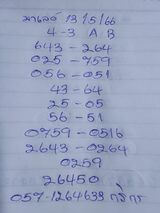 มาเลย์ 13/5/66
4-3 A B
643-264
025-759
056-051
43-64
25-05
56-51
0759-0516
2643-0264
0259
26450
057-1264638